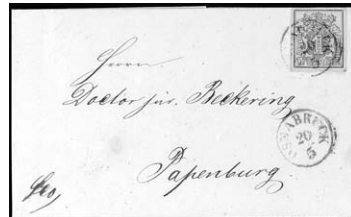 Herrn
Doctor jur. Beckering
OSNABRÜCK
20
5
Papenburg